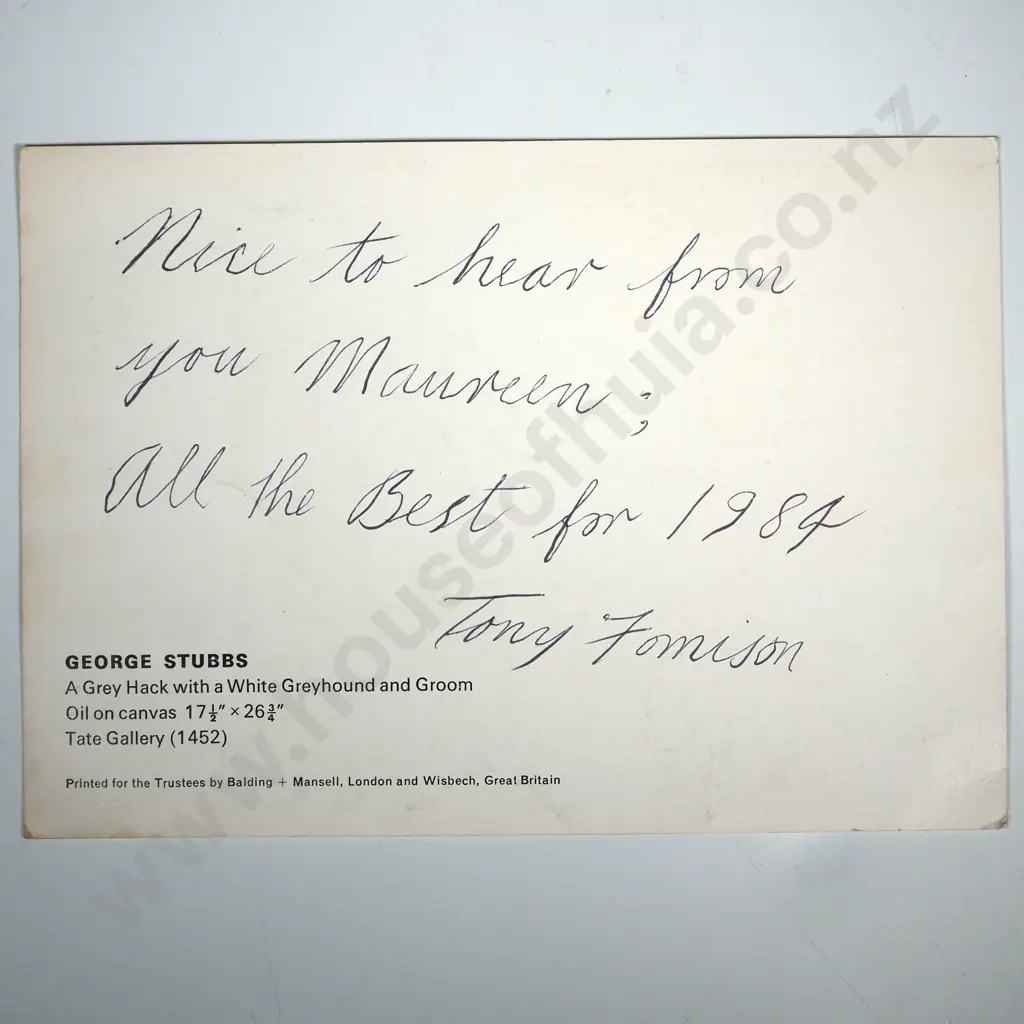 Nice to hear from
you Maureen ;
All the Best for 1984
Tony Fomison
GEORGE STUBBS
A Grey Hack with a White Greyhound and Groom
Oil on canvas 17½" × 26¾"
Tate Gallery (1452)
Printed for the Trustees by Balding + Mansell, London and Wisbech, Great Britain
www.houseofhuia.co.nz